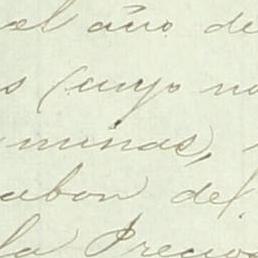 el año de
s (cuyo no
minas,
abon del
la Precio